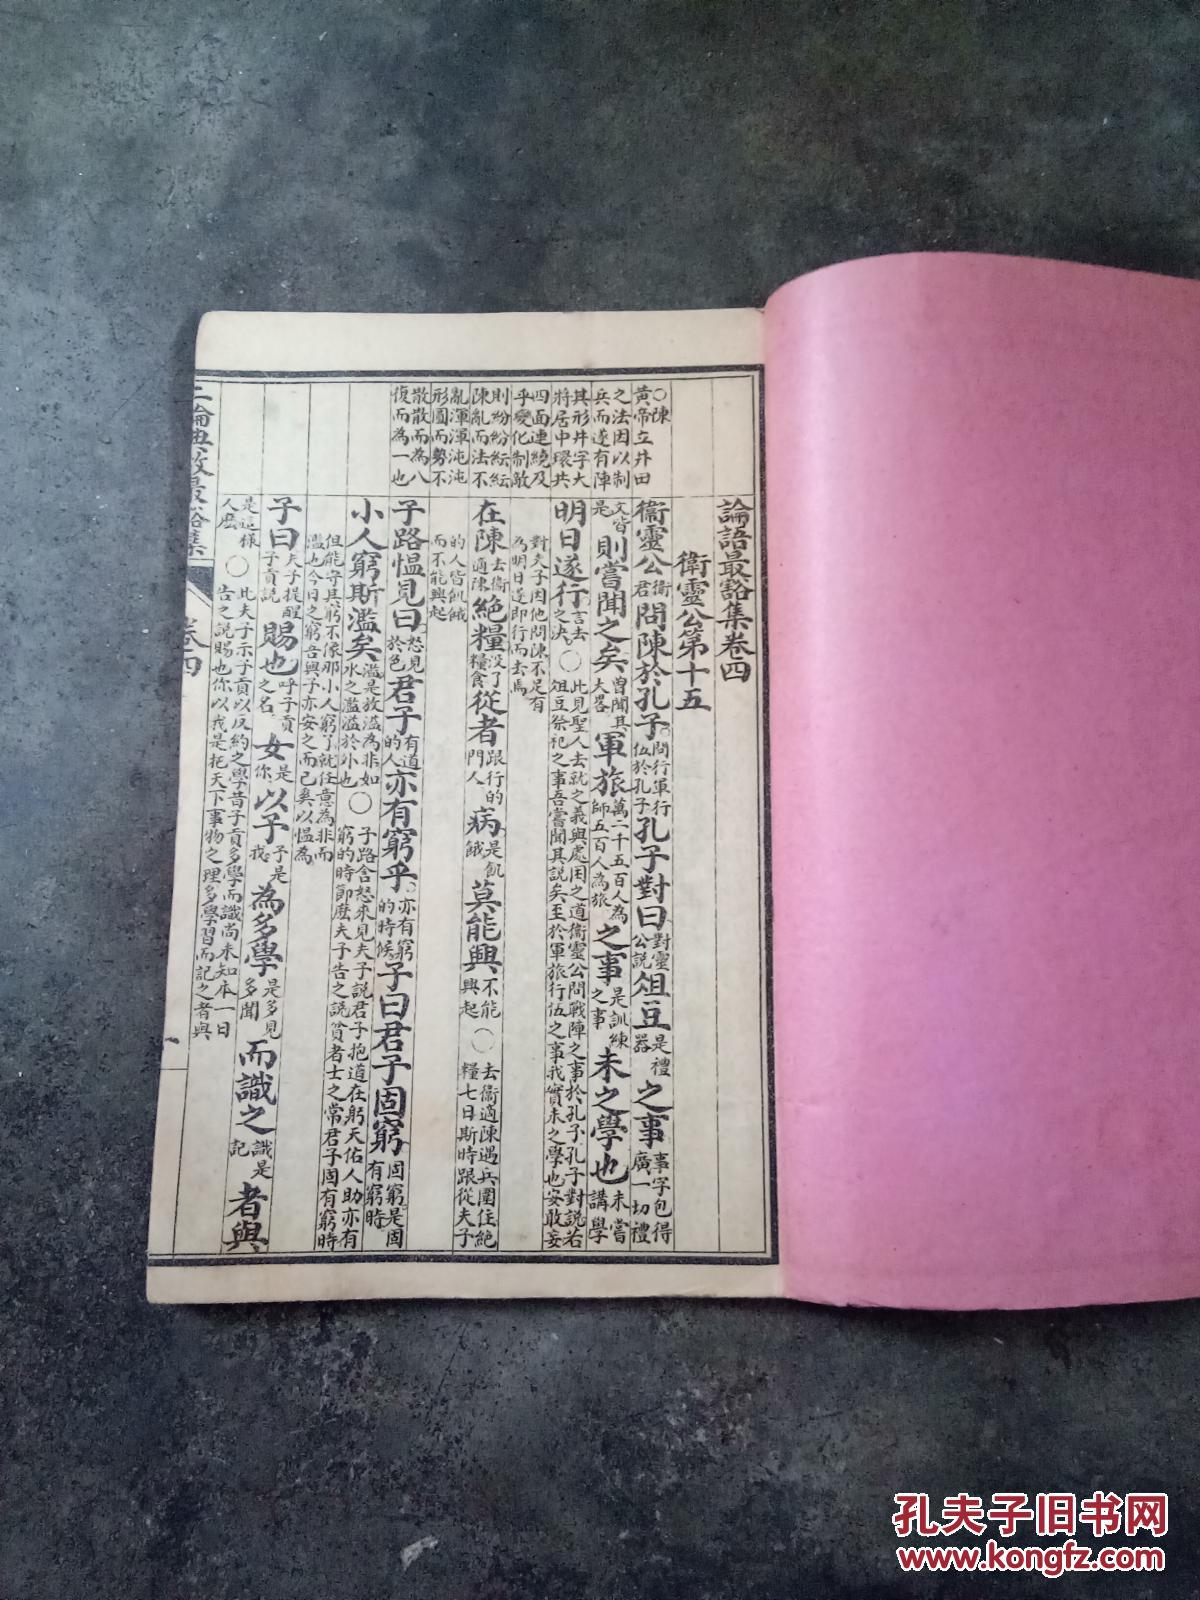 論語最豁集卷四
衛靈公第十五
○陳
黃帝立井田
之法因以制
兵而遂有陣
其形井字大
將居中環共
四面連繞及
乎變化制敵
則紛紛紜紜
陳亂而法不
亂渾渾沌沌
形圓而勢不
散散而為八
復而為一也
衞靈公衛君問陳於孔子問行軍行伍於孔子孔子對曰對靈公說俎豆是禮器之事事字包得廣一切禮
文皆是則嘗聞之矣曾聞其大畧軍旅萬二千五百人為師五百人為旅之事是訓練之事未之學也未嘗講學
明日遂行言去之決○此見聖人去就之義與處困之道衞靈公問戰陣之事於孔子孔子對說若俎豆祭祀之事吾嘗聞其說矣至於軍旅行伍之事我實未之學也安敢妄
對夫子因他問陳不足有為明日遂即行而去焉
在陳去衞適陳絕糧没了糧食從者跟行的門人病是飢餓莫能興不能興起○去衞適陳遇兵圍住絕糧七日斯時跟從夫子
的人皆飢餓而不能興起
子路慍見曰怒見於色君子有道的人亦有窮乎亦有窮的時候子曰君子固窮固窮是固有窮時
小人窮斯濫矣濫是放溢為非如水之濫溢於外也○子路含怒來見夫子說君子抱道在躬天佑人助亦有窮的時節麽夫子告之說貧者士之常君子固有窮時
但能守其窮不像那小人窮了就任意為非而濫也今日之窮吾與子亦安之而已矣以慍為
子曰夫子提醒子貢說賜也呼子貢之名女是你以予予是我為多學是多見多聞而識之識是記者與
是這樣人麽○此夫子示子貢以反約之學昔子貢多學而識尚未知本一日告之說賜也你以我是把天下事物之理多學習而記之者與
二論典故最豁集
卷四
一
孔夫子旧书网
www.kongfz.com